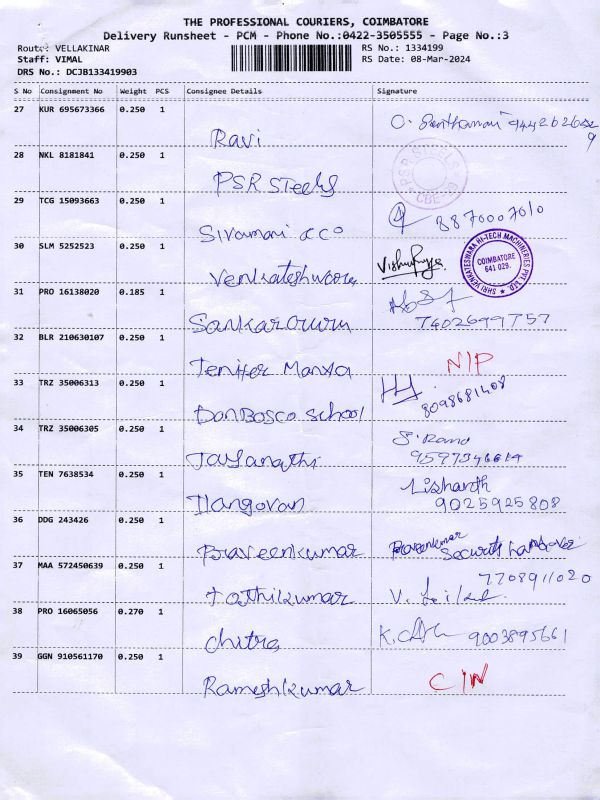 THE PROFESSIONAL COURIERS, COIMBATORE
Delivery Runsheet - PCM - Phone No.:0422-3505555 - Page No.:3
Route: VELLAKINAR
Staff: VIMAL
DRS No.: DCJB133419903
RS No.: 1334199
RS Date: 08-Mar-2024
S No Consignment No Weight PCS Consignee Details Signature
27 KUR 695673366 0.250 1
Ravi
28 NKL 8181841 0.250 1
PSR Steels
PSR STEELS CBE
29 TCG 15093663 0.250 1
Sivamani & Co 8870007010
30 SLM 5252523 0.250 1
Venkateshwara
SHRI VENKATESWARA HI-TECH MACHINERIES PVT. LTD.
COIMBATORE
641 029.
31 PRO 16138020 0.185 1
7402699757
32 BLR 210630107 0.250 1
N/P
33 TRZ 35006313 0.250 1
DonBosco School 8098681408
34 TRZ 35006305 0.250 1
35 TEN 7638534 0.250 1
Lishanth
Ilangovan 9025925808
36 DDG 243426 0.250 1
Praveenkumar Praveenkumar
37 MAA 572450639 0.250 1
7708911020
38 PRO 16065056 0.270 1
Chitra 9003895661
39 GGN 910561170 0.250 1
Rameshkumar C/N